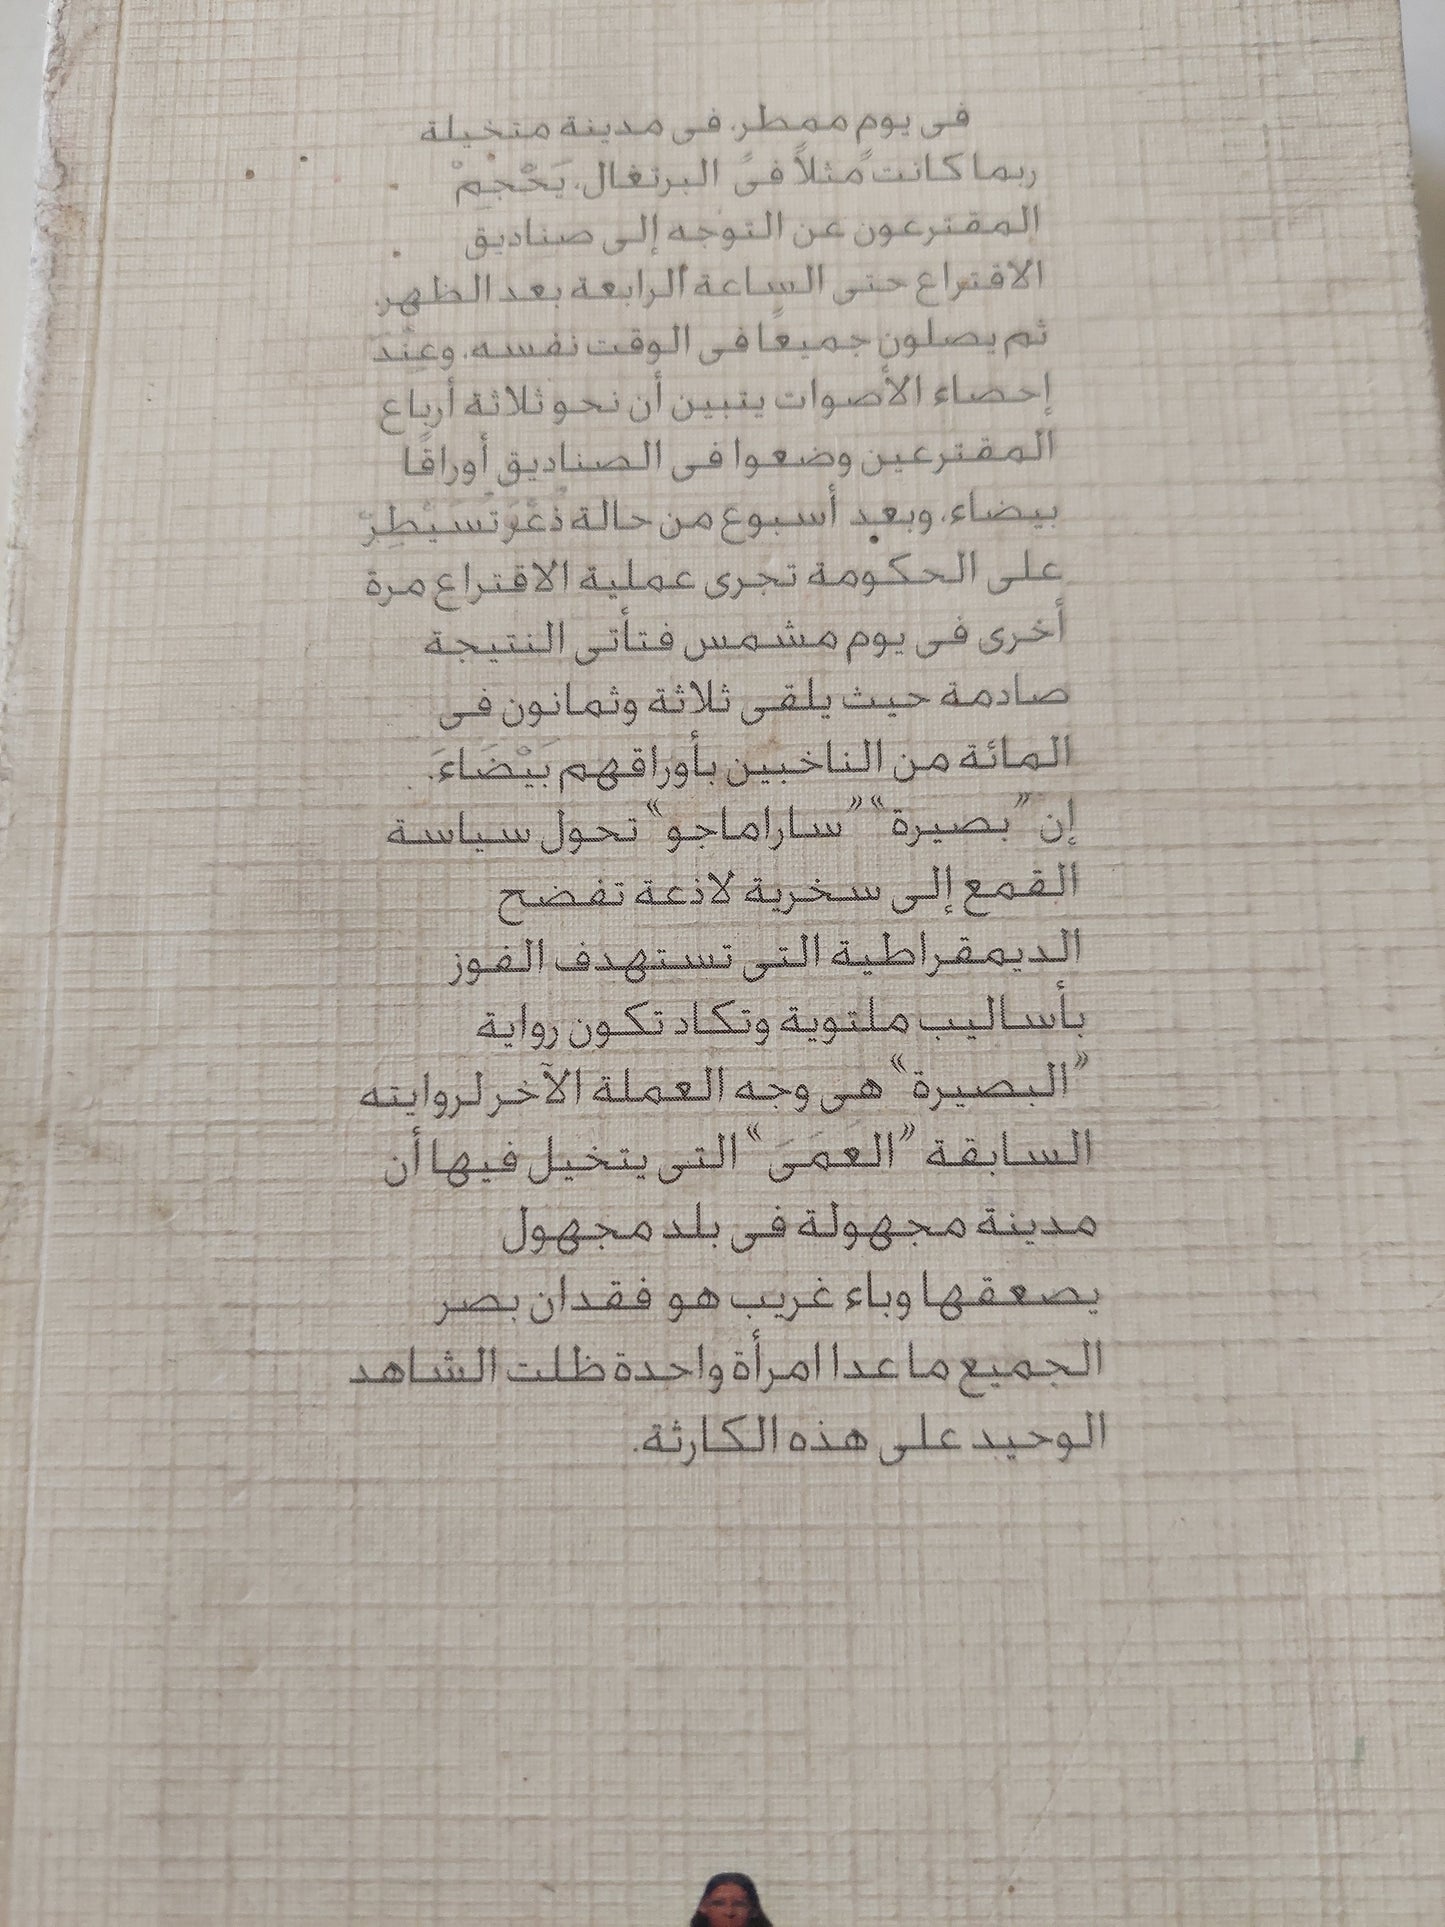 فى يوم ممطر، فى مدينة متخيلة
ربما كانت مثلاً فى البرتغال، يَحْجِمْ
المقترعون عن التوجه إلى صناديق
الاقتراع حتى الساعة الرابعة بعد الظهر،
ثم يصلون جميعًا فى الوقت نفسه، وعِنْدَ
إحصاء الأصوات يتبين أن نحو ثلاثة أرباع
المقترعين وضعوا فى الصناديق أوراقًا
بيضاء، وبعد أسبوع من حالة ذُعْرَ تُسَيْطِرْ
على الحكومة تجرى عملية الاقتراع مرة
أخرى فى يوم مشمس فتأتى النتيجة
صادمة حيث يلقى ثلاثة وثمانون فى
المائة من الناخبين بأوراقهم بَيْضَاءَ.
إن "بصيرة" "ساراماجو" تحول سياسة
القمع إلى سخرية لاذعة تفضح
الديمقراطية التى تستهدف الفوز
بأساليب ملتوية وتكاد تكون رواية
"البصيرة" هى وجه العملة الآخر لروايته
السابقة "العَمَىَ" التى يتخيل فيها أن
مدينة مجهولة فى بلد مجهول
يصعقها وباء غريب هو فقدان بصر
الجميع ما عدا امرأة واحدة ظلت الشاهد
الوحيد على هذه الكارثة.